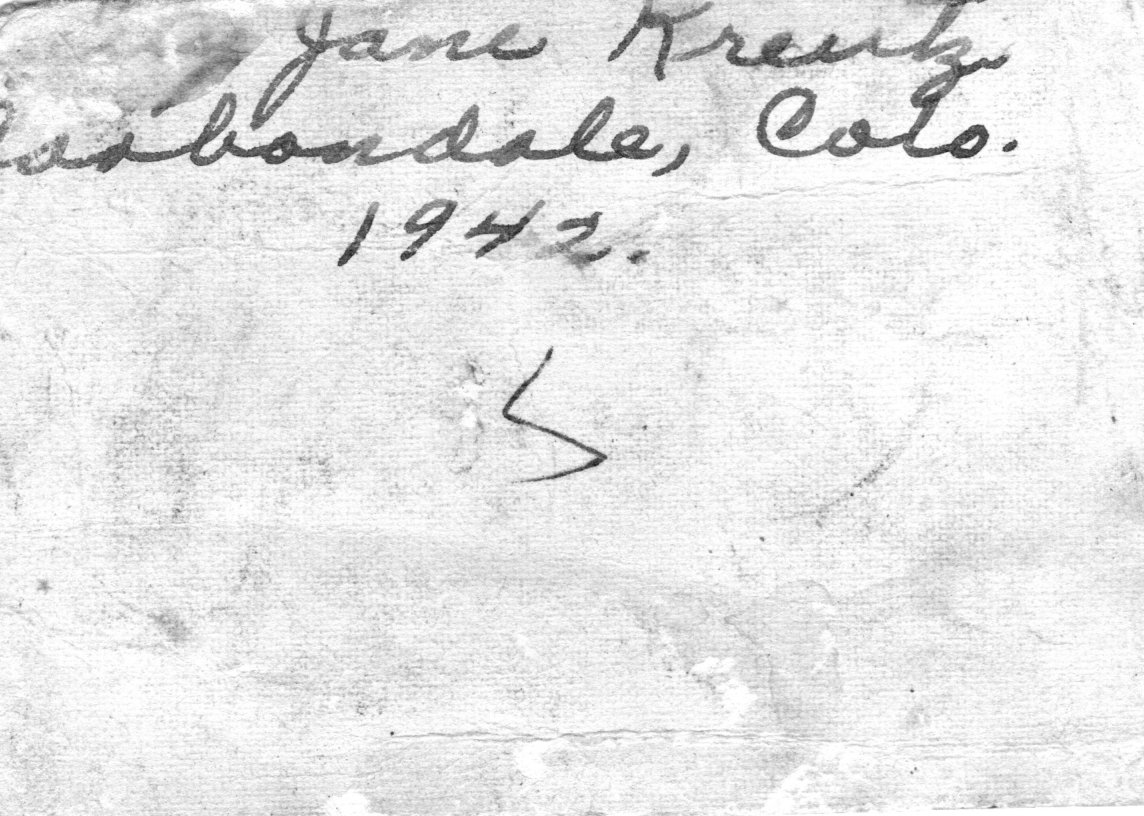 Jane Kreutz
Carbondale, Colo.
1942.